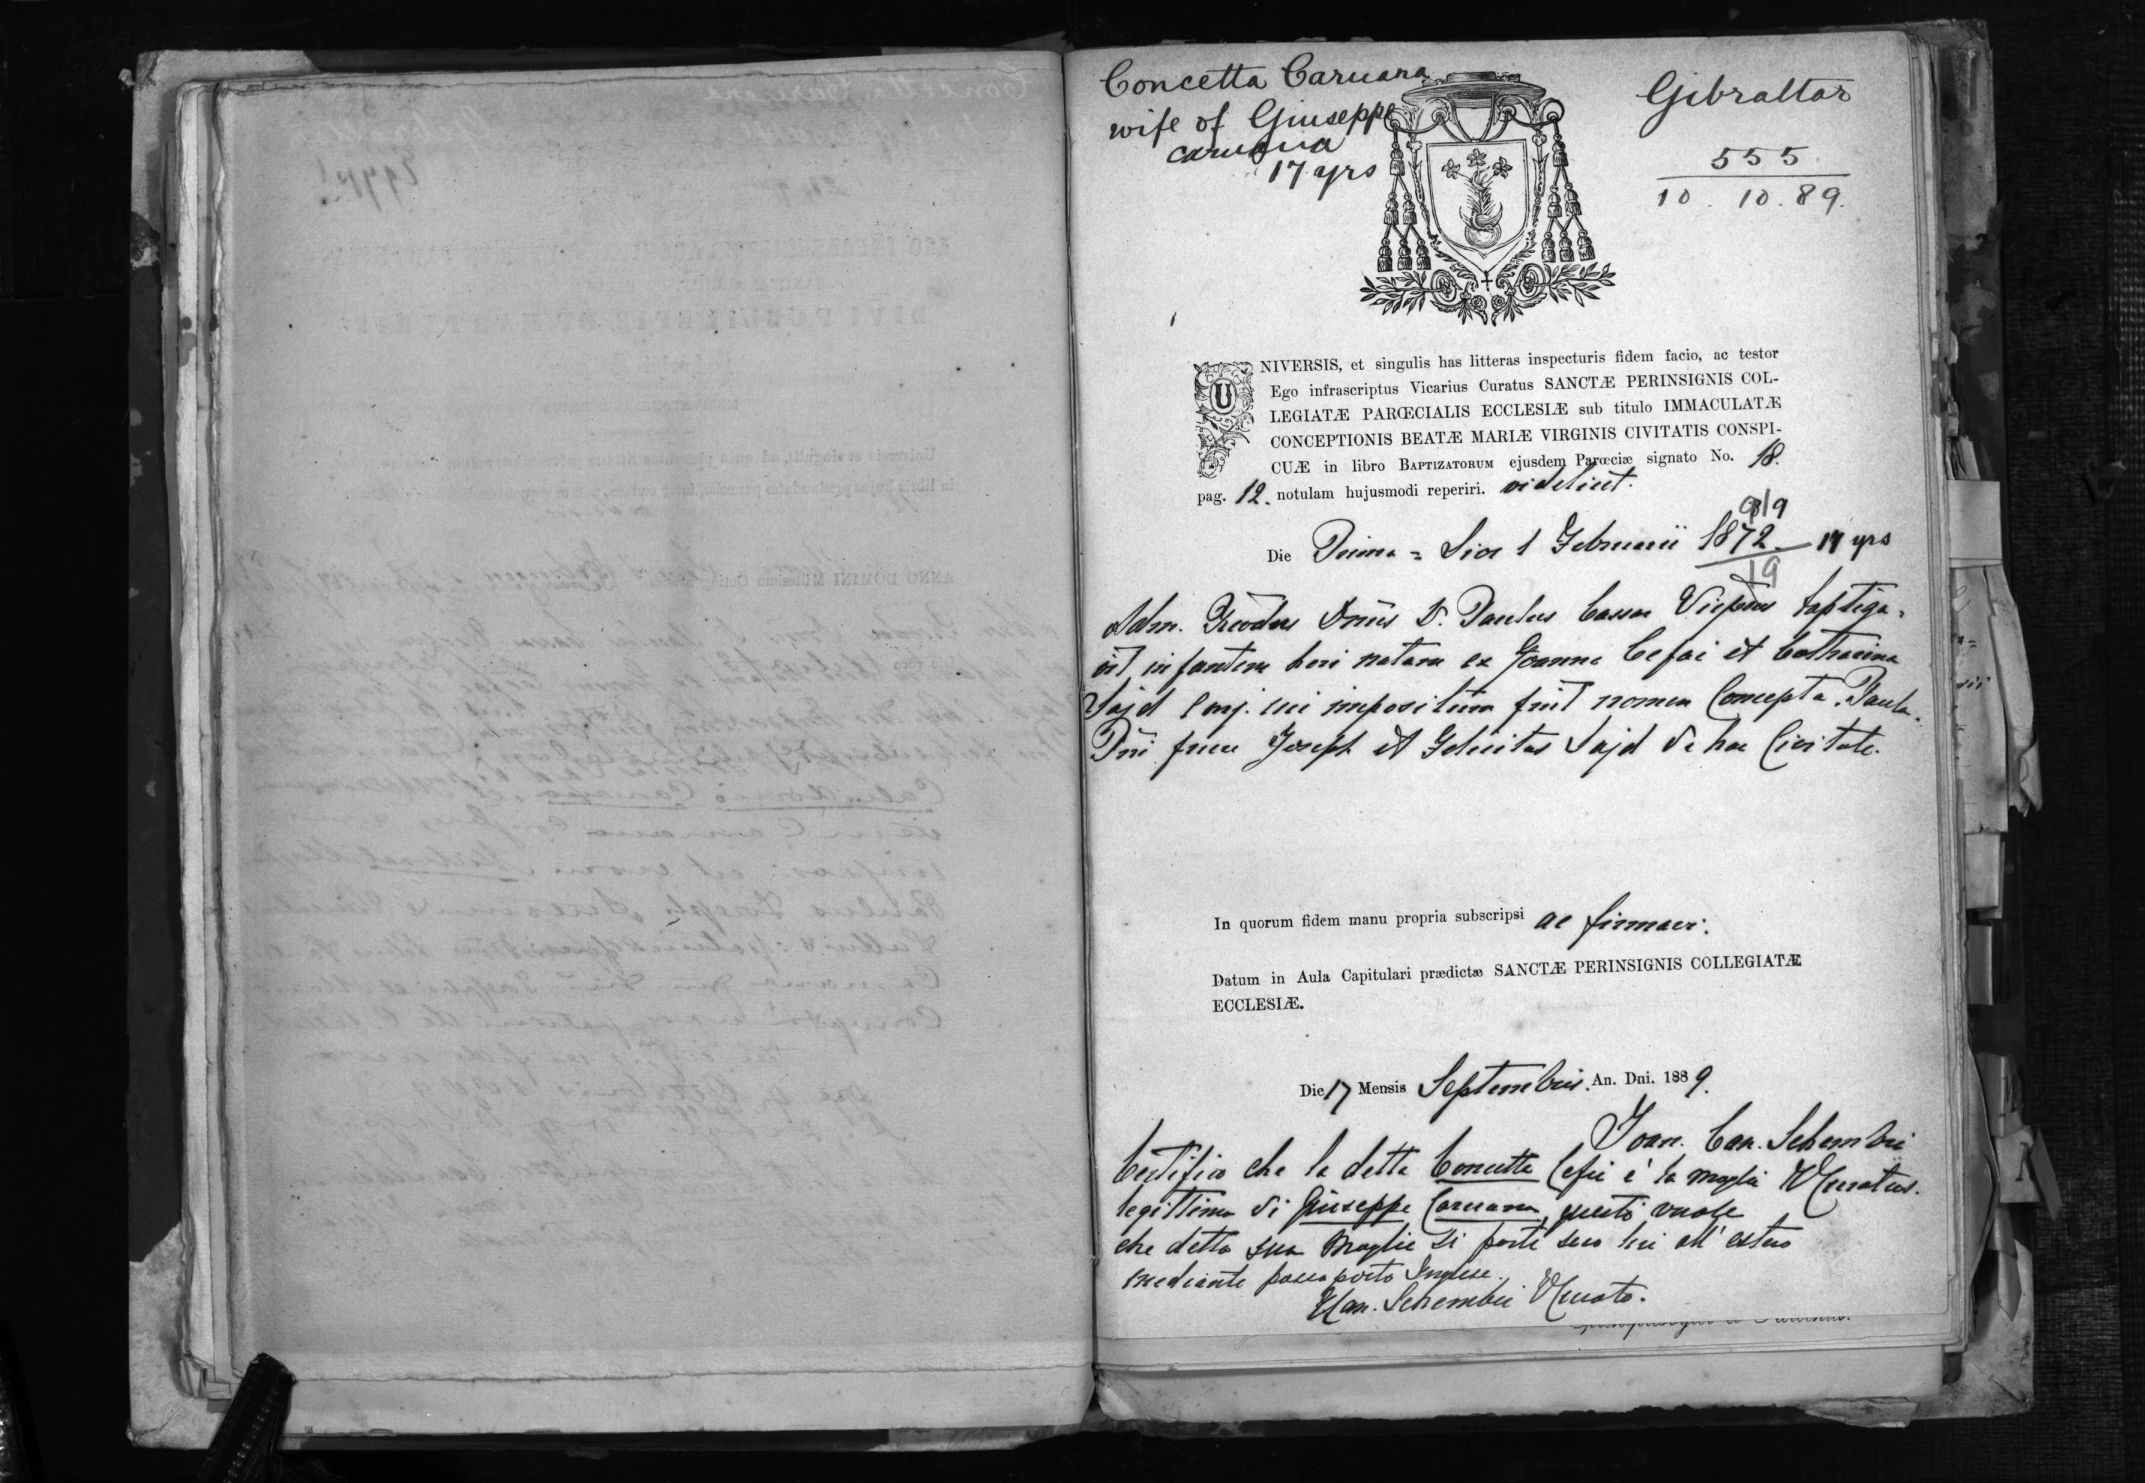 Concetta Caruana
wife of Giuseppe
caruana
17 yrs
Gibraltar
555
10. 10. 89.
UNIVERSIS, et singulis has litteras inspecturis fidem facio, ac testor
Ego infrascriptus Vicarius Curatus SANCTÆ PERINSIGNIS COL-
LEGIATÆ PARŒCIALIS ECCLESIÆ sub titulo IMMACULATÆ
CONCEPTIONIS BEATÆ MARIÆ VIRGINIS CIVITATIS CONSPI-
CUÆ in libro BAPTIZATORUM ejusdem Parœciæ signato No. 18.
pag. 12. notulam hujusmodi reperiri. videlicet.
Die Prima = Die 1 Februarii 1872 17 yrs
Adm. Dnus D. Paulus Cassar baptiza=
vit infantem heri natam ex Joanne Cefai et Catharina
Sajd conj. cui impositum fuit nomen Concepta, Paula.
Pni fuere Joseph et Felicitas Sajd de hac Civitate.
In quorum fidem manu propria subscripsi ac firmavi.
Datum in Aula Capitulari prædictæ SANCTÆ PERINSIGNIS COLLEGIATÆ
ECCLESIÆ.
Die 17 Mensis Septembris. An. Dni. 1889.
Joan. Can. Schembri
V Curatus.
Certifico che la detta Concetta Cefai è la moglie
legittima di Giuseppe Caruana, questi vuole
che detta sua Moglie si porti seco lui all'estero
mediante passaporto Inglese.
Can. Schembri V Curato.